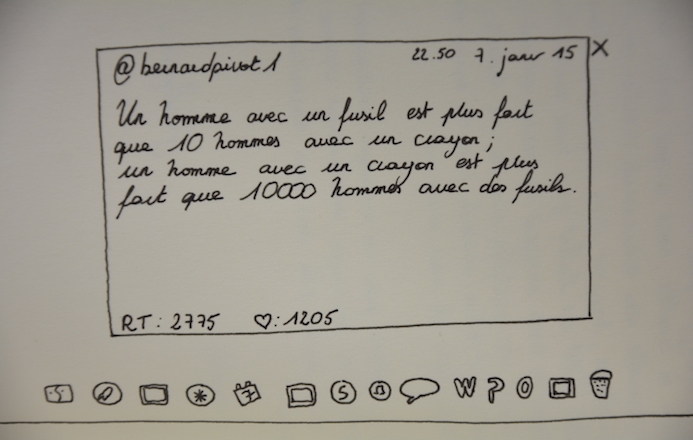 @bernardpivot1 22.50 7. janv 15 X
Un homme avec un fusil est plus fort
que 10 hommes avec un crayon ;
un homme avec un crayon est plus
fort que 10000 hommes avec des fusils.
RT : 2775 ♡: 1205
S 7 S W P O